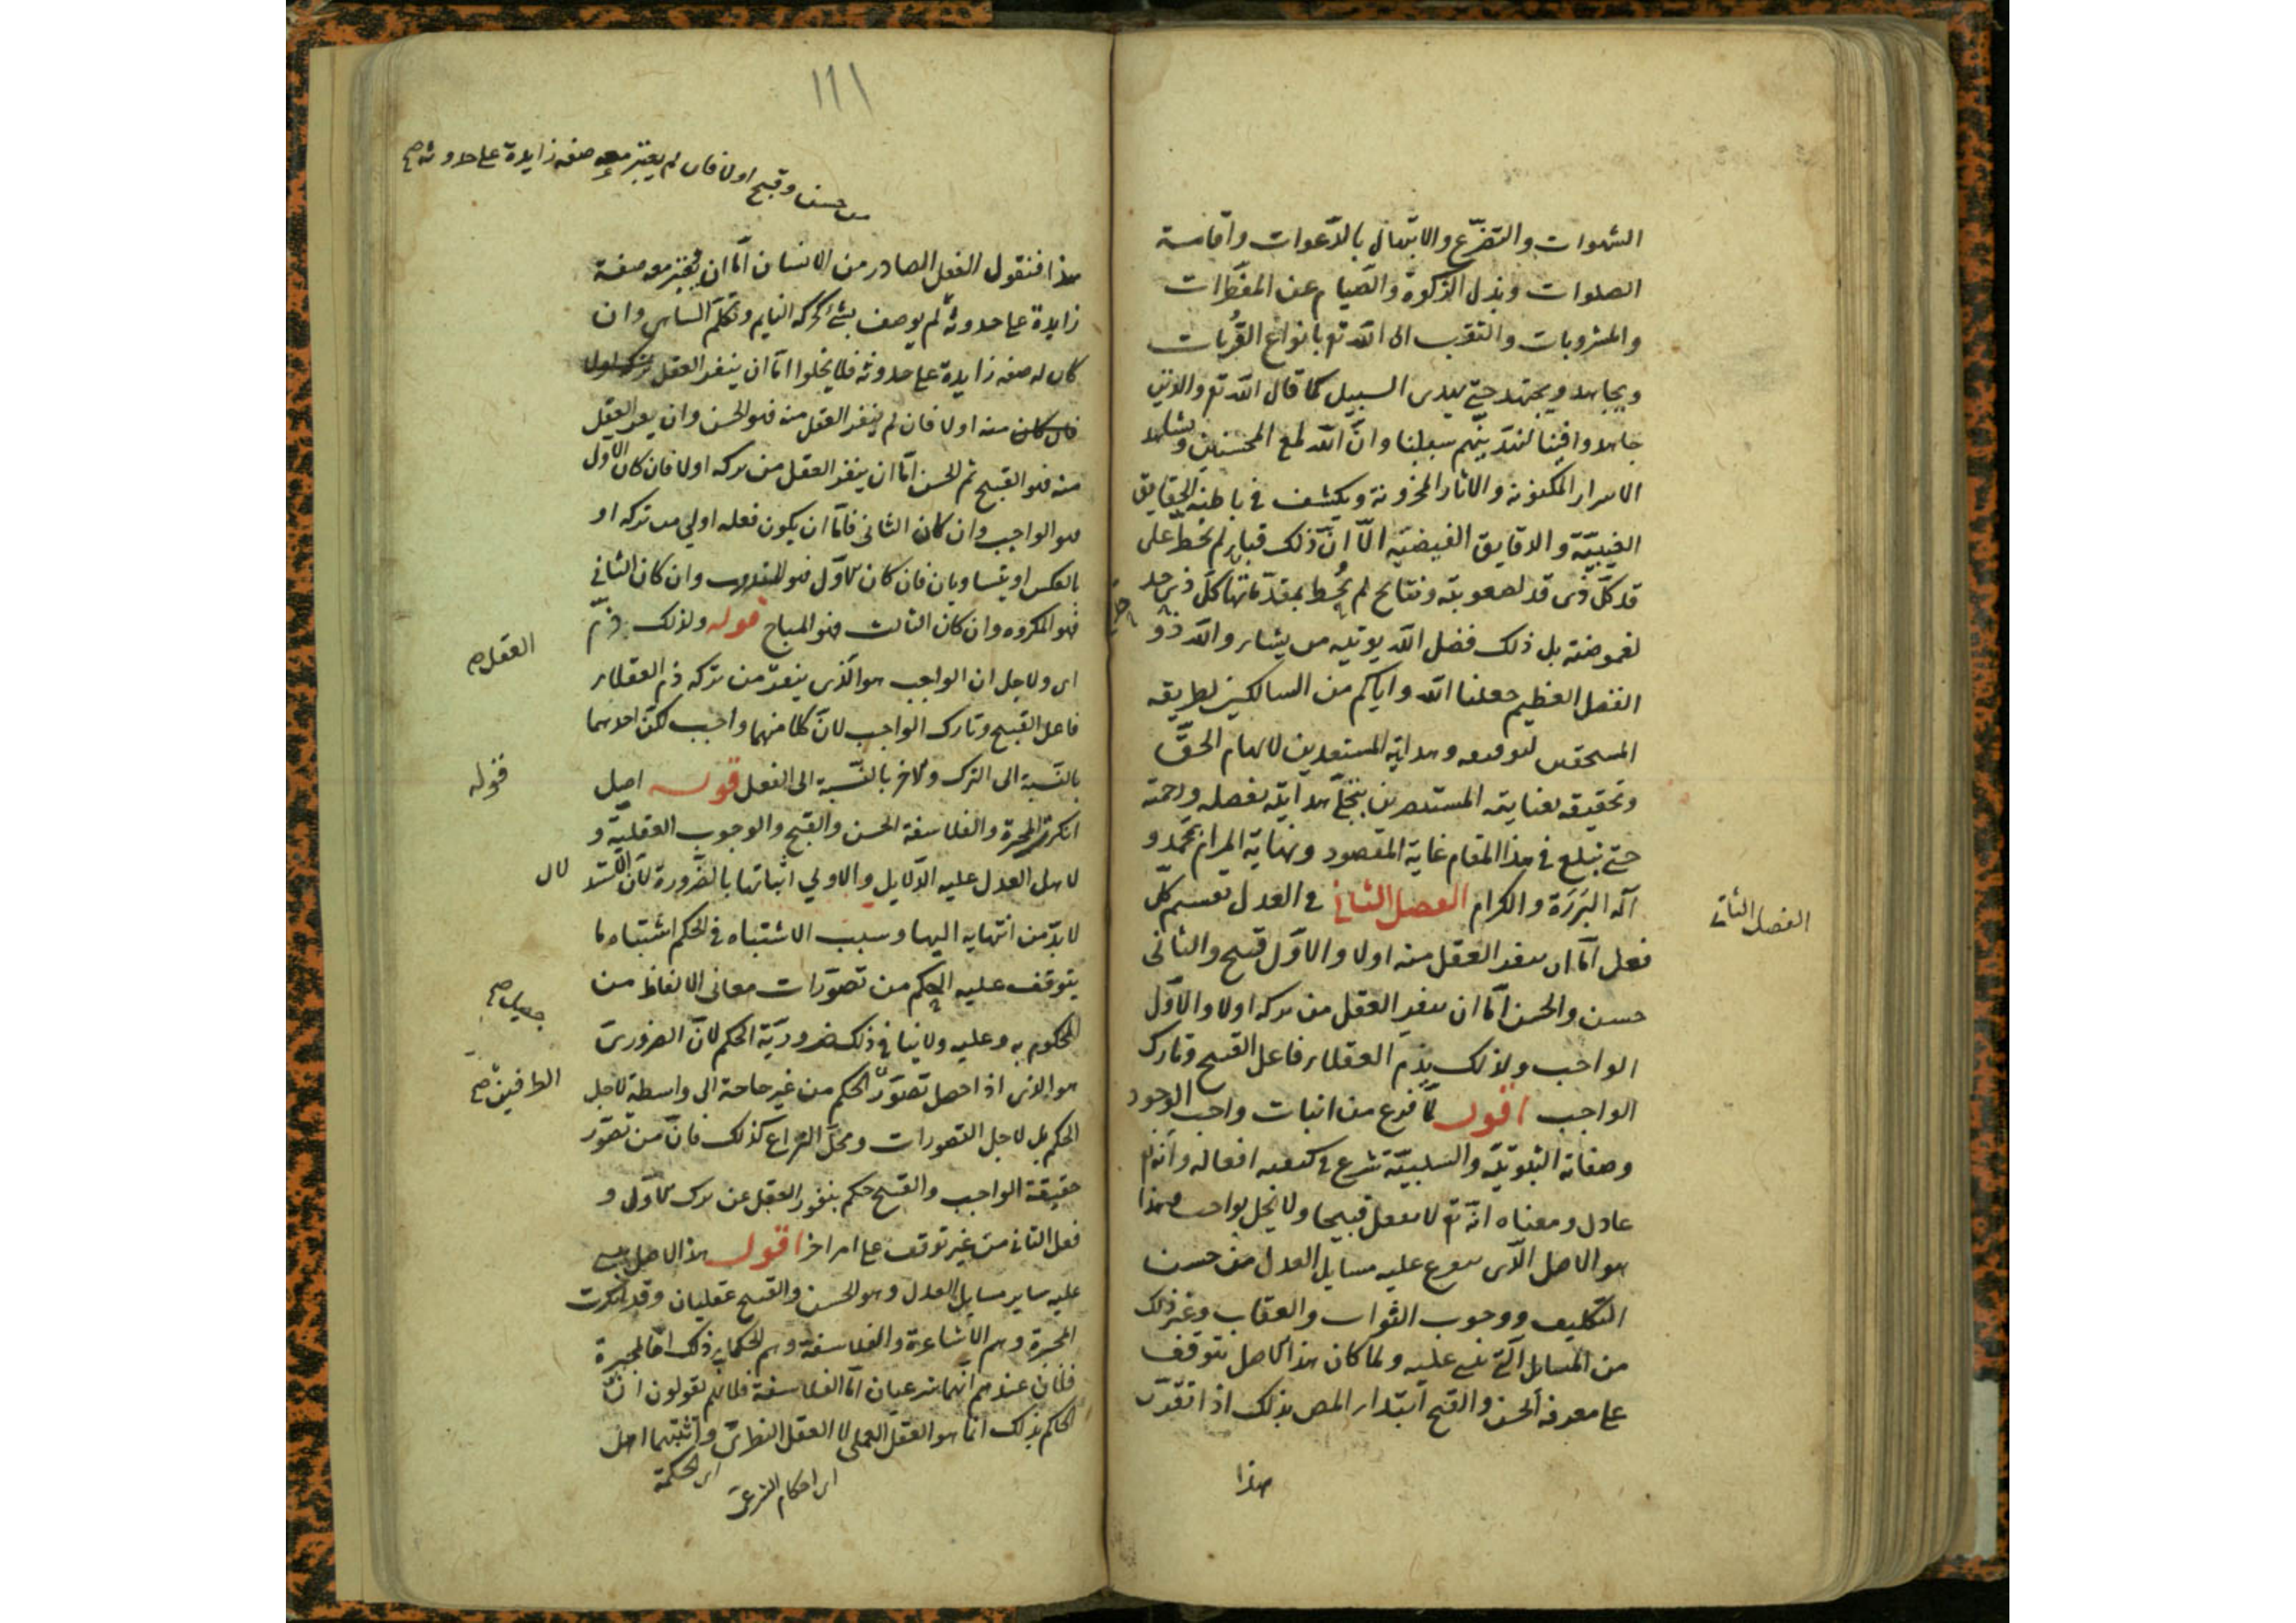 الشهوات والتضرّع والابتهال بالدّعوات واقامة
الصلوات وبذل الزكوة والصّيام عن المفطرات
والمشروبات والتقرب الى اللّه تع بانواع القُربات
ويجاهد ويجتهد حتّى يهدى السبيل كما قال اللّه تع والذين
جاهدوا فينا لنهدينّهم سبلنا وانّ اللّه لمع المحسنين ويشاهد
الاسرار المكنونة والاثار المخزونة ويكشف فى باطنه الحقايق
الغيبيّة والدقايق الفيضيّة الّا انّ ذلك قباء لم يخط على
قد كلّ ذى قد لصعوبته ونتايج لم يُحط بمقدّماتها كلّ ذى حد
لغموضته بل ذلك فضل اللّه يوتيه من يشاء واللّه ذو
الفضل العظيم جعلنا اللّه واياكم من السالكين لطريقه
المستحقين لتوفيقه وهدايته المستعدين لالهام الحقّ
وتحقيقه بعنايته المستبصرين بتجلّى هدايته بفضله ورحمته
حتى نبلغ فى هذا المقام غاية المقصود ونهاية المرام بمحمّد و
آله البَرَرَة والكرام الفصل الثانى فى العدل تقسيم كلّ
الفصل الثانى
فعل امّا ان ينفر العقل منه اولا والاوّل قبيح والثانى
حسن والحسن امّا ان ينفر العقل من تركه اولا والاوّل
الواجب ولذلك يذم العقلاء فاعل القبيح وتارك
الواجب اقول لمّا فرغ من اثبات واجب الوجود
وصفاته الثبوتيّة والسلبيّة شرع فى كيفيه افعاله وانه تع
عادل ومعناه انّه تع لا يفعل قبيحا ولا يخل بواجب وهذا
هو الاصل الّذى يتفرع عليه مسايل العدل من حسن
التكليف ووجوب الثواب والعقاب وغير ذلك
من المسايل الّتى تبنى عليه ولما كان هذا الاصل يتوقف
على معرفة الحسن والقبح ابتداء المص بذلك اذا تقرّر
هذا
١١١
من حسن وقبح اولا فان لم يعتبر معه صفه زايدة على حدوثه صح
هذا فنقول الفعل الصادر من الانسان امّا ان يعتبر معه صفة
زايدة على حدوثه لم يوصف بشئ كحركه النايم وتكلّم الساهى وان
كان له صفه زايدة على حدوثه فلا يخلوا امّا ان ينفر العقل
منه اولا فان لم ينفر العقل منه فهو الحسن وان نفر العقل
منه فهو القبيح ثم الحسن امّا ان ينفر العقل من تركه اولا فان كان الاول
فهو الواجب وان كان الثانى فامّا ان يكون فعله اولى من تركه او
بالعكس او يتساويان فان كان الاوّل فهو المندوب وان كان الثانى
فهو المكروه وان كان الثالث فهو المباح قوله ولذلك ذمّ
العقل صح
اى ولاجل ان الواجب هو الّذى ينفر من تركه ذم العقلاء
فاعل القبيح وتارك الواجب لانّ كلا منهما واجب لكن احدهما
بالنّسبة الى الترك والاخر بالنّسبة الى الفعل قوله اصل
قوله
انكرت المجبرة والفلاسفة الحسن والقبح والوجوب العقليّة و
لاهل العدل عليه الدّلايل والاولى اثباتها بالضّرورة لانّ الاستدلال
لا بدّ من انتهايه اليها وسبب الاشتباه فى الحكم اشتباه ما
يتوقف عليه الحكم من تصوّرات معانى الالفاظ من
المحكوم به وعليه ولا ينافى ذلك ضروريّة الحكم لانّ الضروريّ
هو الذى اذا حصل تصوّر الحكم من غير حاجة الى واسطة لاجل
الطرفين صح
الحكم بل لاجل التصورات ومحلّ النّزاع كذلك فانّ من تصوّر
حقيقة الواجب والقبيح حكم بنفور العقل عن ترك الاوّل و
فعل الثانى من غير توقف على امر اخر اقول هذا الاصل يبنى
عليه ساير مسايل العدل وهو الحسن والقبح عقليان وقد انكرت
المجبرة وهم الأشاعرة والفلاسفة وهم الحكماء ذلك امّا المجبرة
فلانّ عندهم انّهما شرعيان امّا الفلاسفة فلانّهم يقولون انّ
الحاكم بذلك انّما هو العقل العملى لا العقل النظرىّ واثبتهما اهل
اى الحكمة
اى احكام الشرعىّ